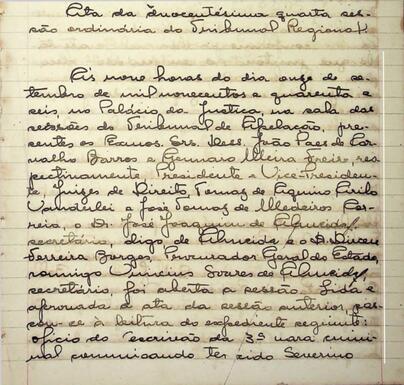 Ata da ducentésima quarta ses-
são ordinária do Tribunal Regional.
Às nove horas do dia onze de se-
tembro de mil novecentos e quarenta e
seis, no Palácio da Justiça, na sala das
sessões do Tribunal de Apelação, pre-
sentes os Exmos. Srs. Dess. João Paes de Car-
valho Barros e Gennaro Meira Freire, res
pectivamente Presidente e Vice-Presiden-
te, Juizes de Direito Tomaz de Aquino Cirilo
Wanderlei e José Tomaz de Medeiros Cor-
reia, o Dr. José Joaquim de Almeida,
secretário, digo de Almeida e o Dr. Dirceu
Ferreira Borges, Procurador Geral do Estado,
comigo Vinicius Soares de Almeida,
secretário, foi aberta a sessão. Lida e
aprovada a ata da sessão anterior, pas-
sou-se à leitura do expediente seguinte:
oficio do escrivão da 3ª vara crimi-
nal comunicando ter sido Severino